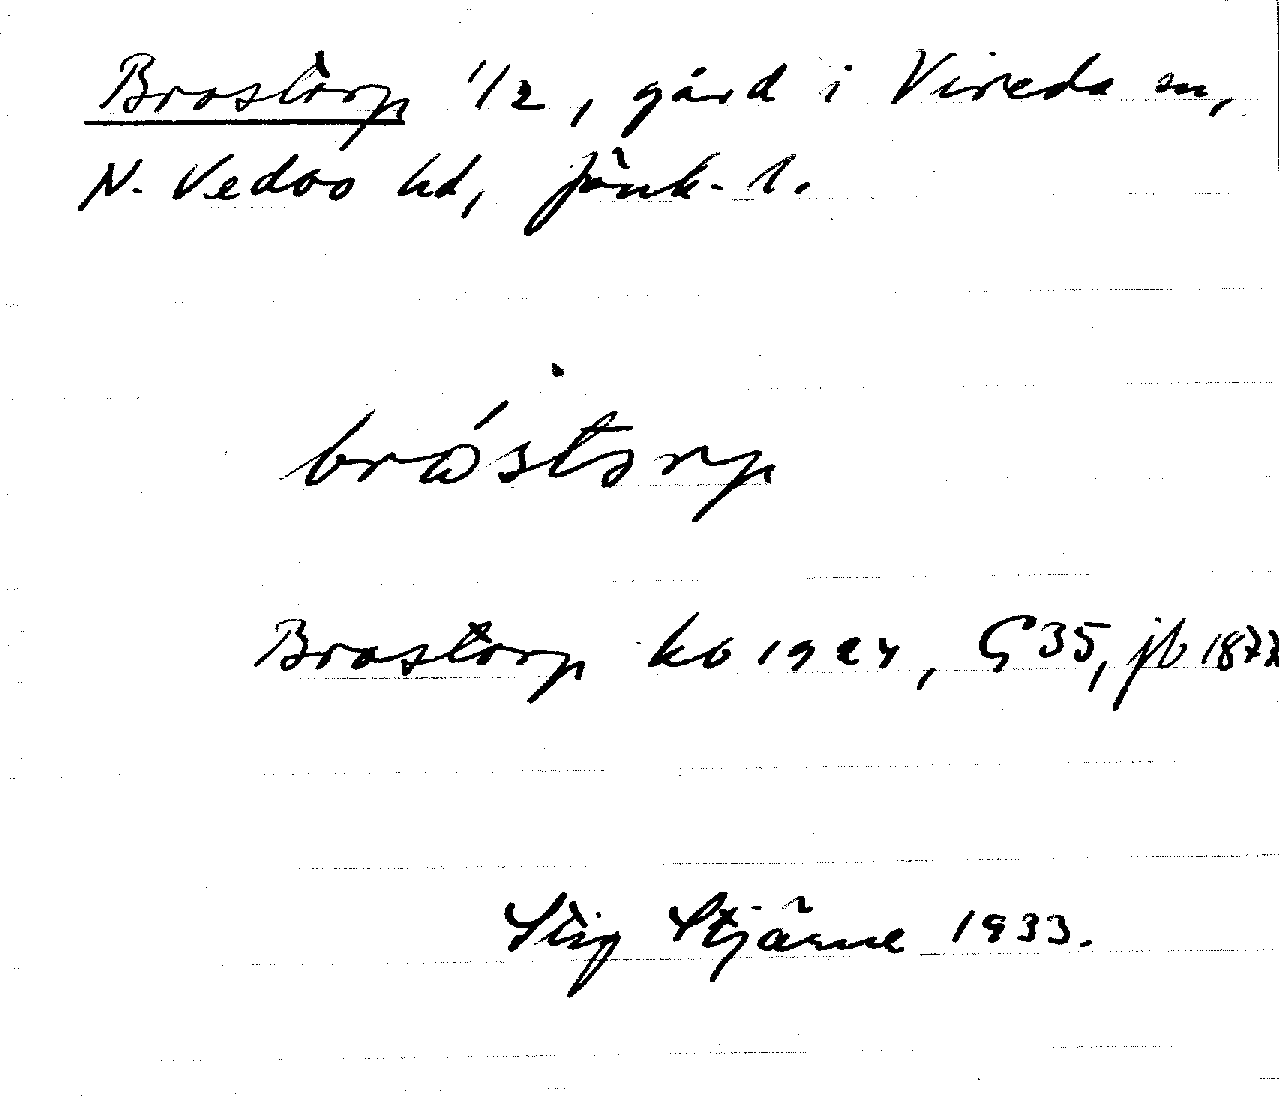 Brostorp 1/2, gård i Vireda sn,
N. Vedbo hd, Jönk. l.
bróstorp
Brostorp kb 1924, G 35, jb 1877
Stig Stjärne 1933.